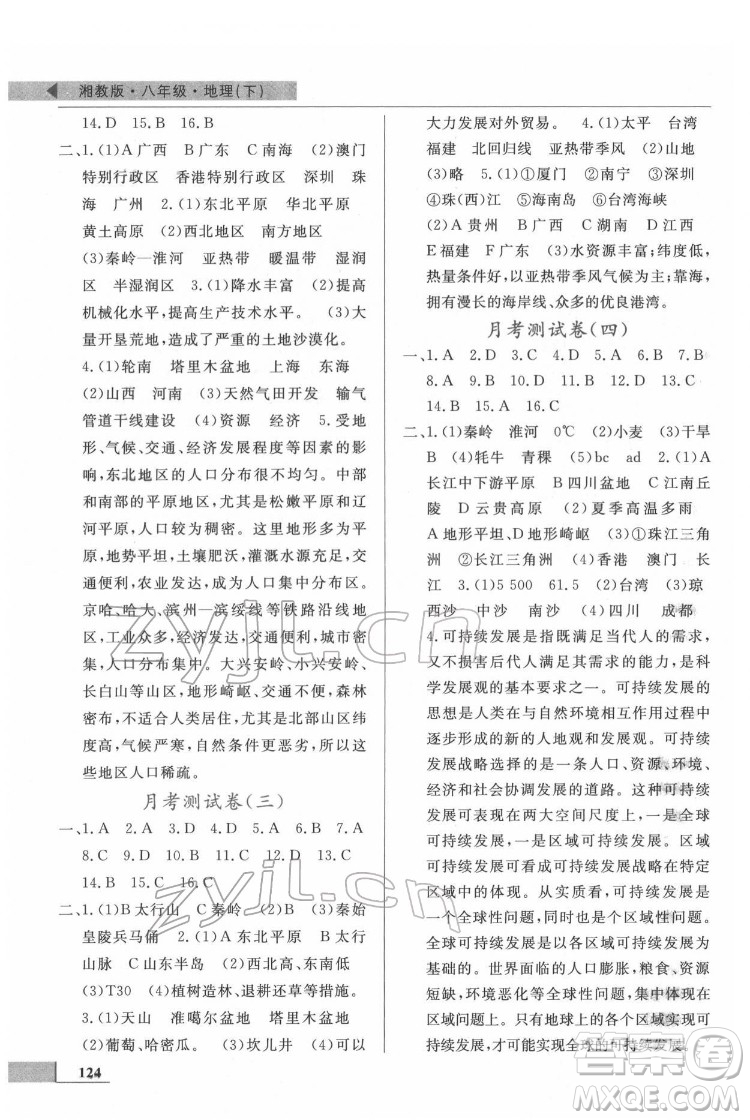 湘教版·八年级·地理(下)
14.D 15.B 16.B
二、1.(1)A 广西 B 广东 C 南海 (2)澳门
特别行政区 香港特别行政区 深圳 珠
海 广州 2.(1)东北平原 华北平原
黄土高原 (2)西北地区 青藏地区
(3)秦岭—淮河 亚热带 暖温带 湿润
区 半湿润区 3.(1)降水丰富 (2)提高
机械化水平,提高生产技术水平。 (3)大
量开垦荒地,造成了严重的土地沙漠化。
4.(1)轮南 塔里木盆地 上海 东海
(2)山西 河南 (3)天然气田开发 输气
管道干线建设 (4)资源 经济 5.受地
形、气候、交通、经济发展程度等因素的影
响,东北地区的人口分布很不均匀。中部
和南部的平原地区,尤其是松嫩平原和辽
河平原,人口较为稠密。这里地形多为平
原,地势平坦,土壤肥沃,灌溉水源充足,交
通便利,农业发达,成为人口集中分布区。
京哈、哈大、滨州—滨绥线等铁路沿线地
区,工业众多,经济发达,交通便利,城市密
布,人口分布集中。大兴安岭、小兴安岭、
长白山等山区,地形崎岖,交通不便,森林
密布,不适合人类居住,尤其是北部山区纬
度高,气候严寒,自然条件更恶劣,所以这
些地区人口稀疏。
月考测试卷(三)
一、1.A 2.A 3.D 4.D 5.B 6.D 7.A
8.C 9.C 10.D 11.D 12.B 13.D
14.B 15.C 16.C
二、1.(1)B 太行山 C 秦岭 (2)B (3)秦始
皇陵兵马俑 2.(1)A 东北平原 B 太行
山脉 C 山东半岛 (2)西北 高 东南 低
(3)T30 (4)植树造林、退耕还草等措施。
3.(1)天山 准噶尔盆地 塔里木盆地
(2)葡萄、哈密瓜。 (3)坎儿井 (4)可以
大力发展对外贸易。 4.(1)太平 台湾
福建 北回归线 亚热带季风 (2)山地
(3)略 5.(1)①厦门 ②南宁 ③广州
④珠(西)江 ⑤海南岛 ⑥台湾海峡
(2)A 贵州 B 广西 C 湖南 D 江西
E 福建 F 广东 (3)水资源丰富;纬度低,
热量条件好,以亚热带季风气候为主;靠海,
拥有漫长的海岸线、众多的优良港湾。
月考测试卷(四)
一、1.A 2.D 3.D 4.D 5.B 6.B 7.B
8.A 9.A 10.C 11.C 12.D 13.D
14.B 15.A 16.C
二、1.(1)秦岭 淮河 0℃ (2)小麦 (3)干旱
B (4)牦牛 青稞 (5)bc ad 2.(1)A
长江中下游平原 B 四川盆地 C 江南丘
陵 D 云贵高原 (2)夏季高温多雨
A 地形平坦 D 地形崎岖 (3)①长江三角
洲 ②珠江三角洲 (4)香港 澳门 长
江 3.(1)5 500 61.5 (2)台湾 (3)琼
西沙 中沙 南沙 (4)四川 成都
4.可持续发展是指既满足当代人的需求,
又不损害后代人满足需求的能力,是科学
发展观的基本要求之一。可持续发展的
思想是人类在与自然环境相互作用过程中
逐步形成的新的人地观和发展观。可持续
发展的基本思想是走一条人口、资源、环境、
经济和社会协调发展的道路。可持续发展
的实现在两大空间尺度上展开,一是全球可
持续发展,一是区域可持续发展。区域可持
续发展可看成可持续发展战略在特定
区域中的体现。因此可持续发展既是
一个全球性问题,同时也是个区域性问
题,且全球可持续发展以区域可持续发展为
基础的。世界面临的人口膨胀,粮食、资源
短缺,环境恶化等全球性问题,集中体现在
区域问题方面。只有地球上的各个区域可
持续发展,才可能实现全球的可持续发展。
124
zyjl.cn
zyjl.cn
答案圈
MXQE.COM